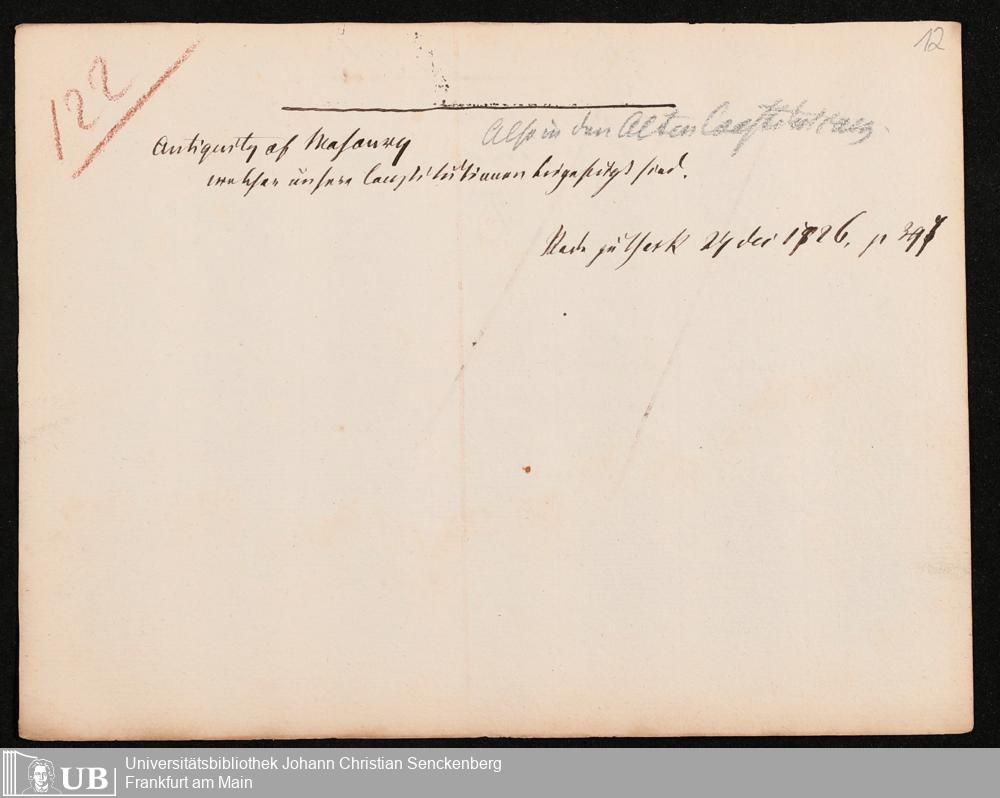 12
122
Also in den Alten Constitutionen.
Antiquity of Masonry
welcher unsere Constitutionen beigefügt sind.
Rede zu York 27 Dec 1726. p
Universitätsbibliothek Johann Christian Senckenberg
Frankfurt am Main
UB